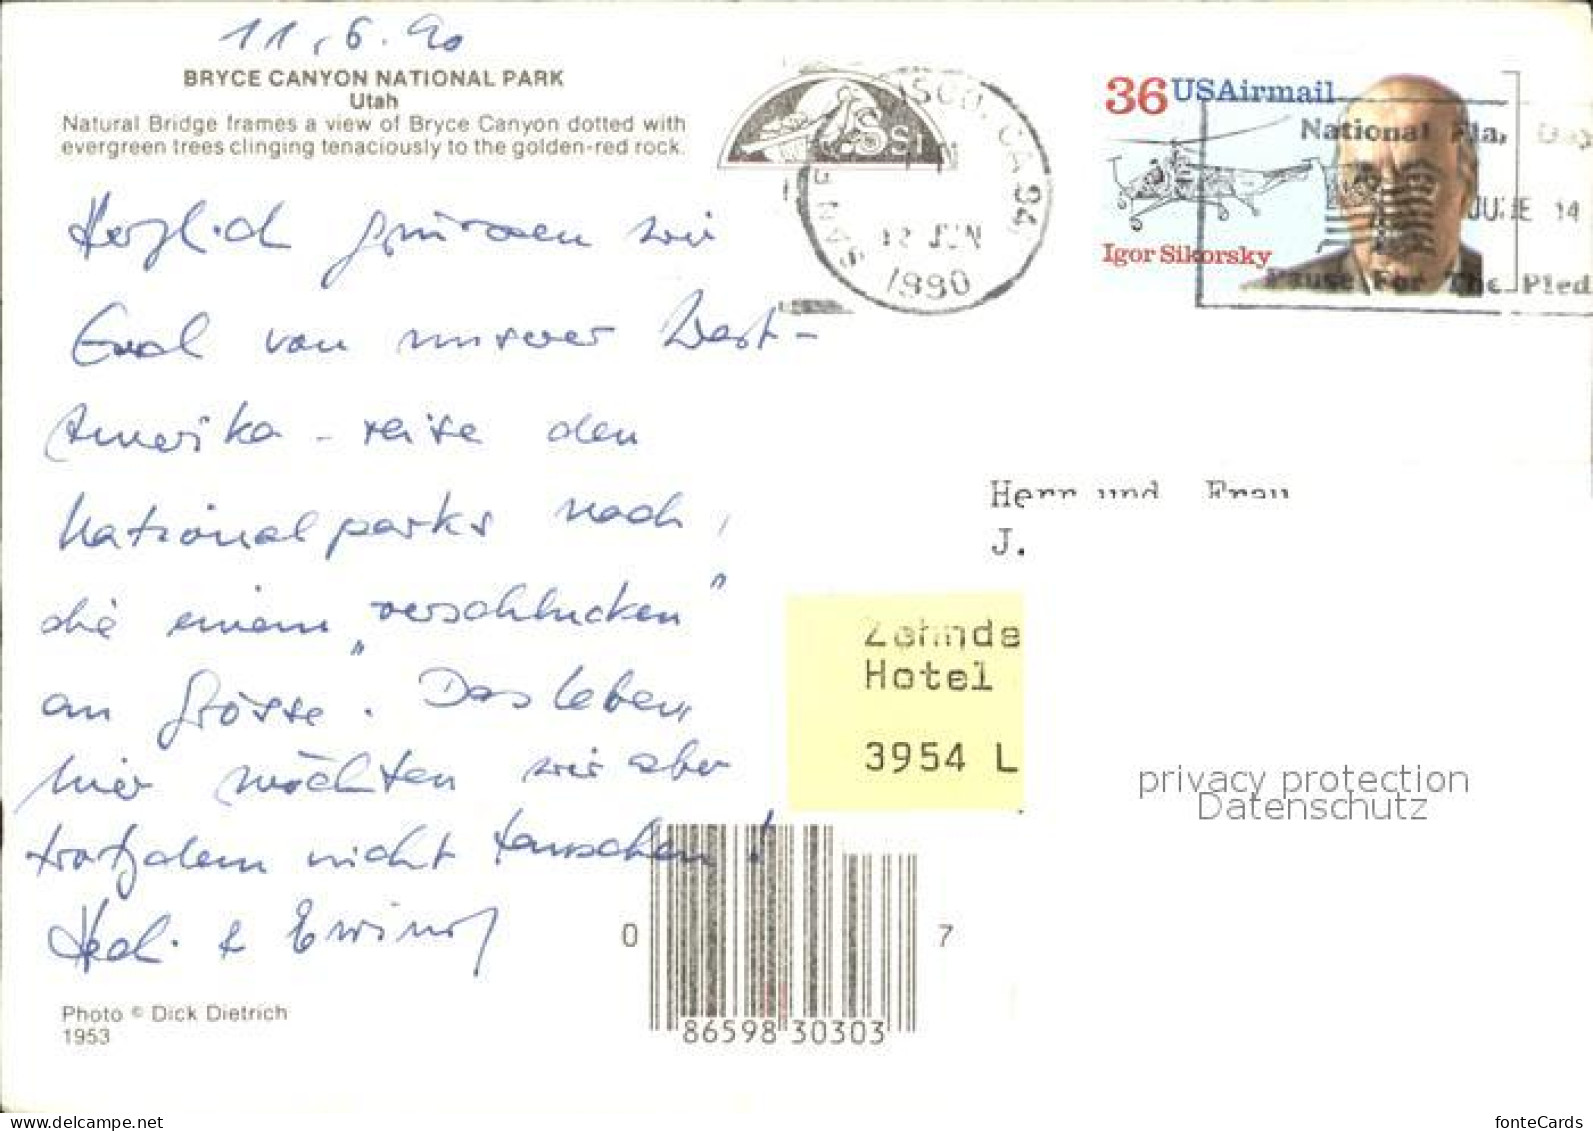 11.6.90
BRYCE CANYON NATIONAL PARK
Utah
Natural Bridge frames a view of Bryce Canyon dotted with
evergreen trees clinging tenaciously to the golden-red rock.
Herzlich grüssen wir
Euch von unserer West-
Amerika-reise den
Nationalparks nach,
die einem „verschlucken"
an Grösse. Das Leben
hier möchten wir aber
trotzdem nicht tauschen!
Hedi & Erwin
Photo © Dick Dietrich
1953
CA 94
12 JUN
1990
36 USAirmail
Igor Sikorsky
National
JUNE 14
Pause For The Pled
Herr und Frau
J.
Zehnde
Hotel
3954 L
0 86598 30303 7
privacy protection
Datenschutz
www.delcampe.net
fonteCards